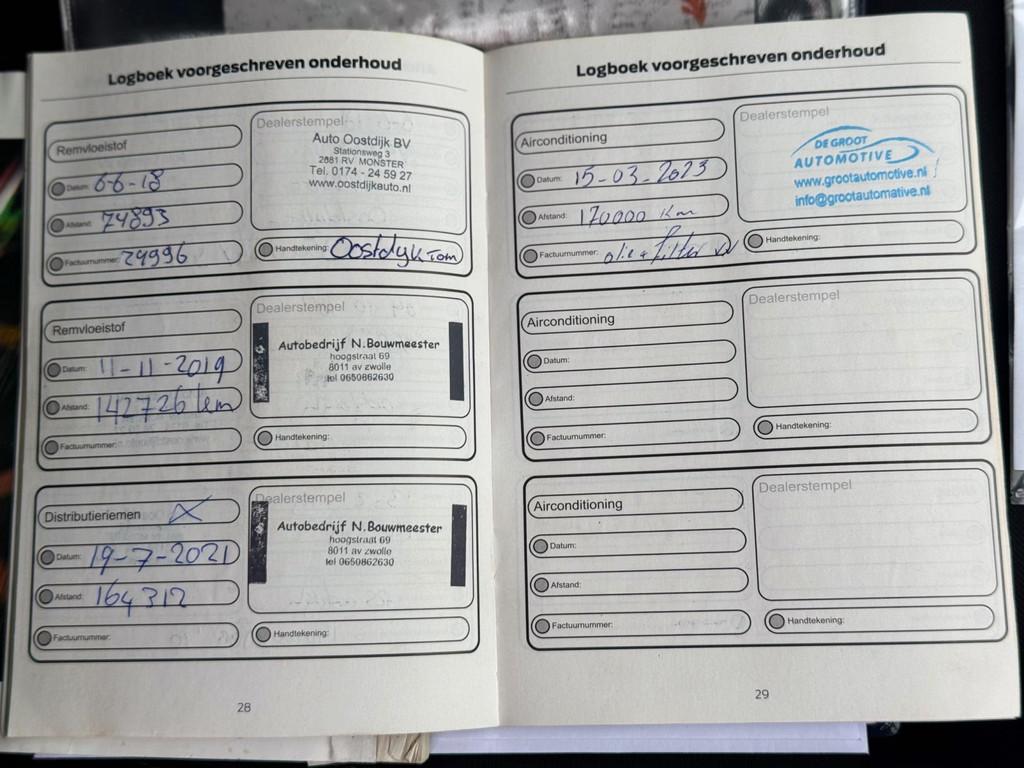 Logboek voorgeschreven onderhoud
Remvloeistof
Datum: 6-6-18
Afstand: 74893
Factuurnummer: 29996
Dealerstempel
Auto Oostdijk BV
Stationsweg 3
2681 RV MONSTER
Tel. 0174 - 24 59 27
www.oostdijkauto.nl
Handtekening: Oostdijk Tom
Remvloeistof
Datum: 11-11-2019
Afstand: 142726 km
Factuurnummer:
Dealerstempel
Autobedrijf N.Bouwmeester
hoogstraat 69
8011 av zwolle
tel 0650862630
Handtekening:
Distributieriemen X
Datum: 19-7-2021
Afstand: 164312
Factuurnummer:
Dealerstempel
Autobedrijf N.Bouwmeester
hoogstraat 69
8011 av zwolle
tel 0650862630
Handtekening:
28
Logboek voorgeschreven onderhoud
Airconditioning
Datum: 15-03-2023
Afstand: 170000 Km
Factuurnummer: olie + filter
Dealerstempel
DE GROOT
AUTOMOTIVE
www.grootautomotive.nl
info@grootautomative.nl
Handtekening:
Airconditioning
Datum:
Afstand:
Factuurnummer:
Dealerstempel
Handtekening:
Airconditioning
Datum:
Afstand:
Factuurnummer:
Dealerstempel
Handtekening:
29